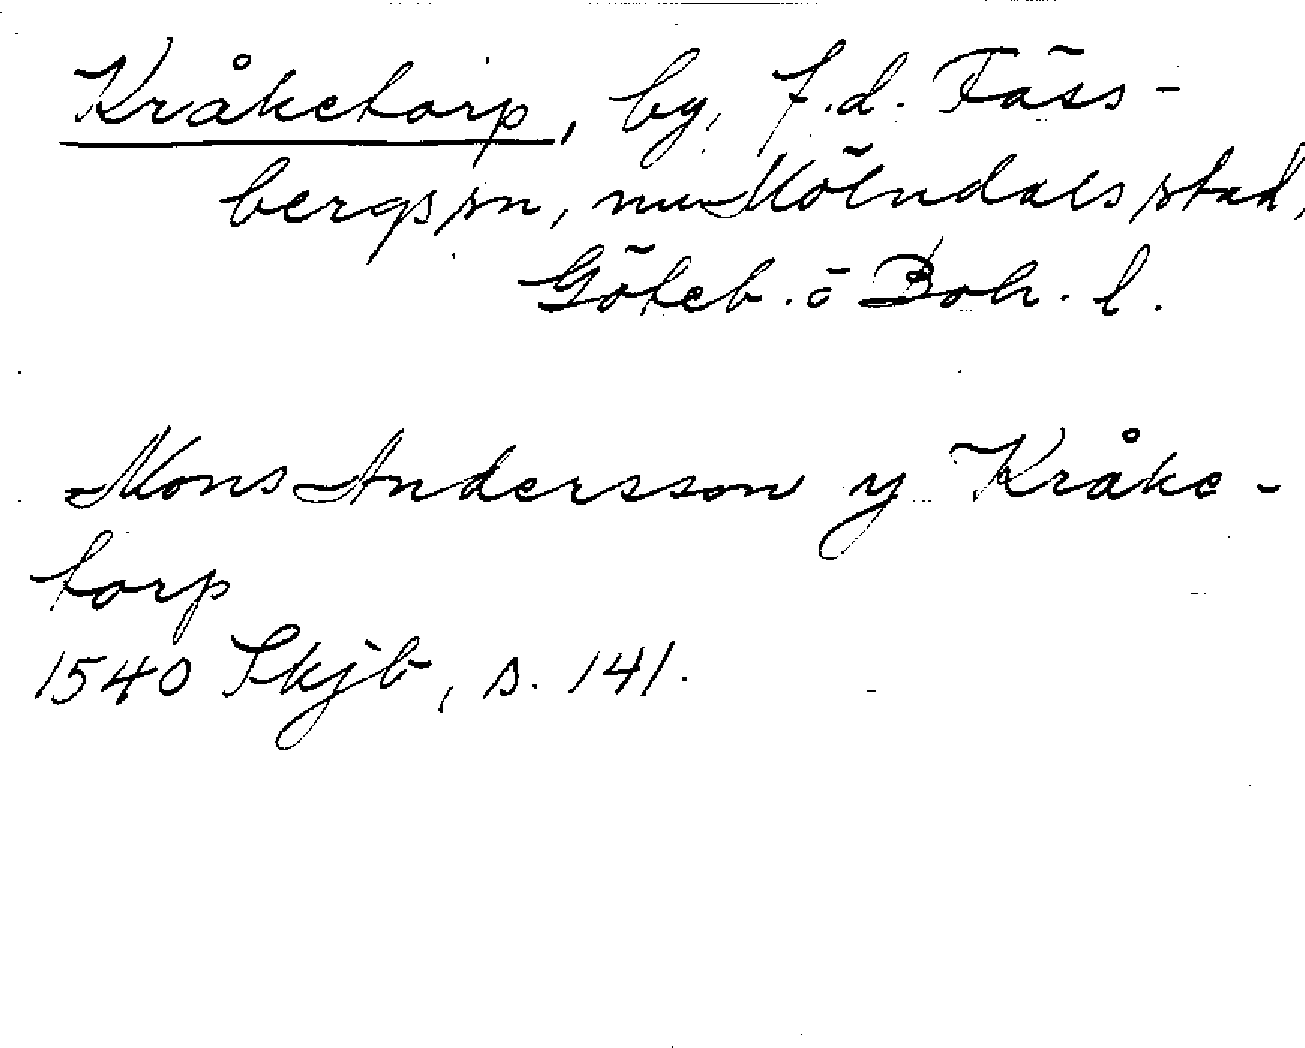 Kråketorp, by, f.d. Fäss-
bergs sn, nu Mölndals stad,
Göteb. o Boh. l.
Mons Andersson y Kråke-
torp
1540 Skjb, s. 141.